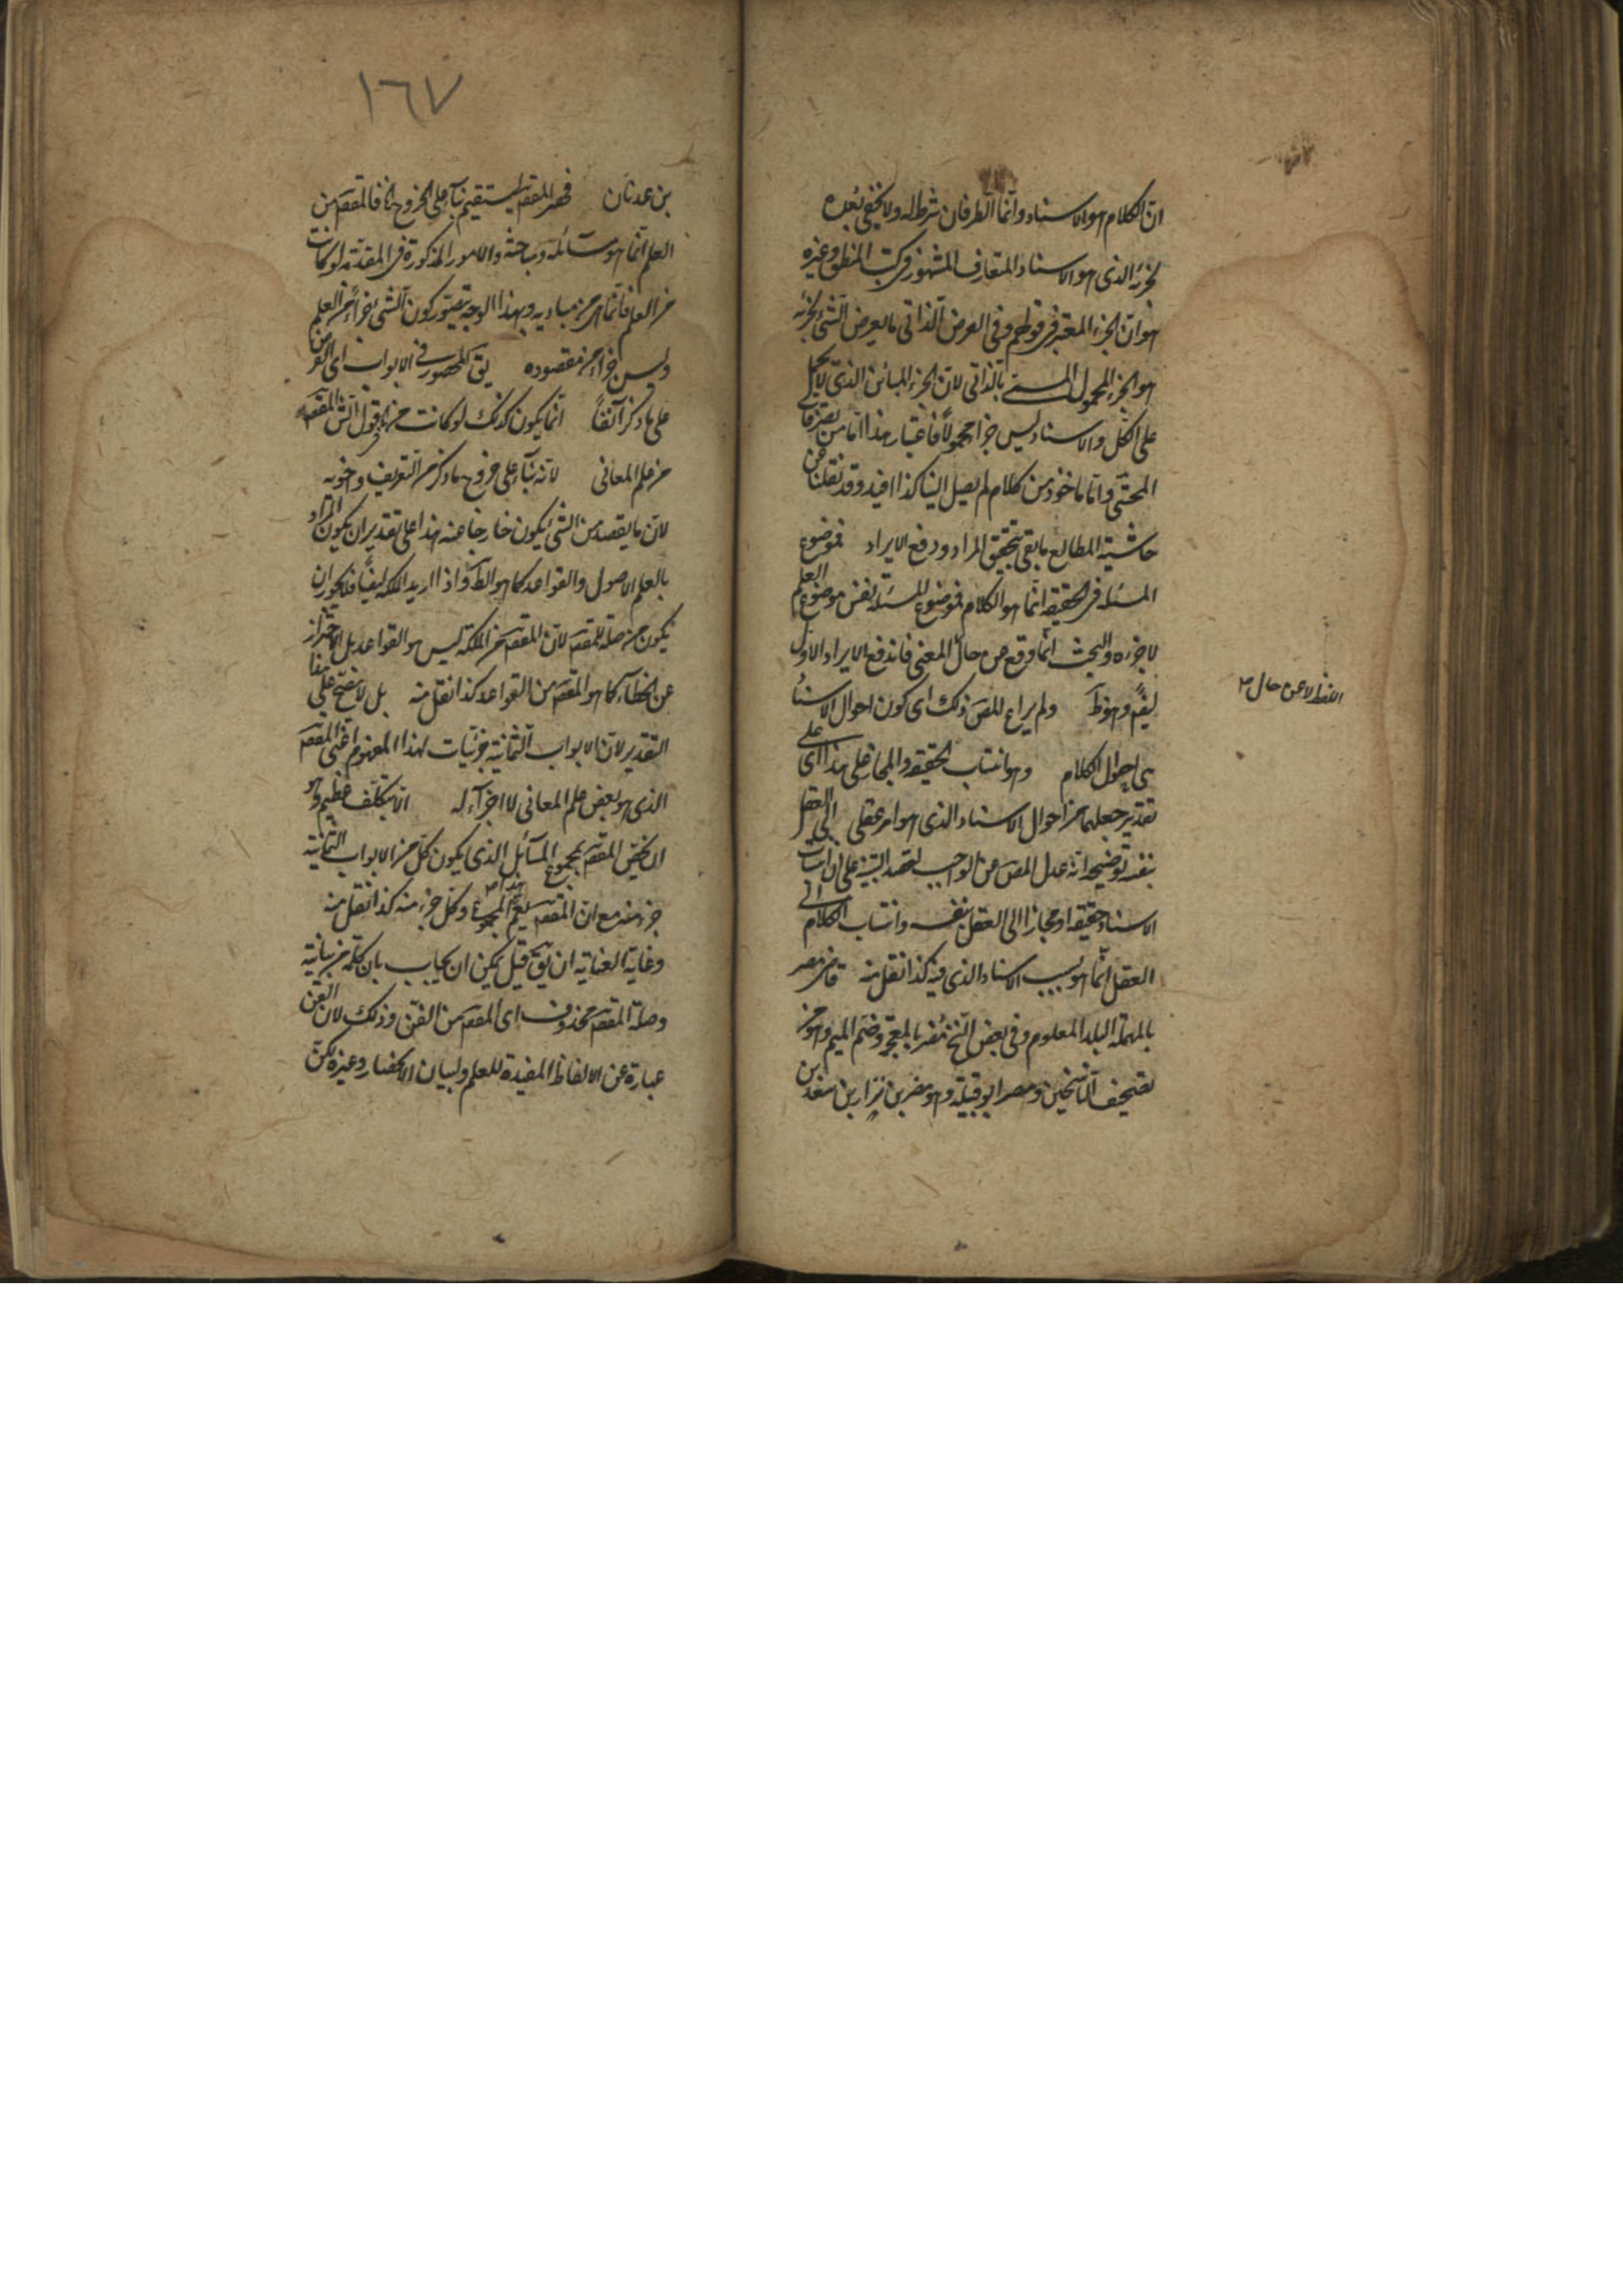 ان الكلام هو الاسناد وانما الطرفان شرط له ولا يخفى بعده
لجزئه الذى هو الاسناد المتعارف المشهور فى كتب المنطق وغيره
هو ان الجزء المعتبر فى قولهم وفى العرض الذاتى ما يعرض الشئ لجزئه
هو الجزء المحمول المسمى بالذاتى لان الجزء المباين الذى لا يحمل
على الكل والاسناد ليس جزا محمولا فاعتبار هذا اما من تصرفات
المحشى واما ماخوذ من كلام لم يصل الينا كذا افيد وقد نقلنا عن
حاشية المطالع ما يفى بتحقيق المراد ودفع الايراد فموضوع
المسئلة فى الحقيقة انما هو الكلام فموضوع المسئلة نفس موضوع العلم
لا جزءه والبحث انما وقع عن حال المعنى فاندفع الايراد الاول
اللفظ لا عن حال صح
ايضا وهو ظ ولم يراع المص ذلك اى كون احوال الاسناد
هى احوال الكلام وهو انتساب الحقيقة والمجاز على هذا اى على
تقدير جعلهما من احوال الاسناد الذى هو امر عقلى الى العقل
بنفسه توضيحه انه عدل المص عن الواجب لقصد التنبيه على ان انتساب
الاسناد حقيقة او مجازا الى العقل بنفسه وانتساب الكلام الى
العقل انما هو بسبب الاسناد الذى فيه كذا نقل منه قاضى مصر
بالمهملة البلد المعلوم وفى بعض النسخ مضر بالمعجمة وضم الميم وهو من
تصحيف الناسخين ومضر ابو قبيلة وهو مضر بن نزار بن معد بن
١٦٧
بن عدنان فحصر المقصد يستقيم بناء على الخروج اذ المقصد من
العلم انما هو مسائله ومباحثه والامور المذكورة فى المقدمة لو كانت
من العلم فانما هى من مباديه وبهذا الوجه يتصور كون الشئ جزأ من العلم
وليس جزأ من مقصوده يق المحصور فى الابواب اى الفن
على ما ذكر آنفا انما يكون كذلك لو كانت من قول الش المقصد
من علم المعانى لانه بناء على خروج ما ذكر من التعريف واخويه
لان ما يقصد من الشئ يكون خارجا عنه هذا على تقدير ان يكون المراد
بالعلم الاصول والقواعد كما هو الظ واذا اريد الملكة ايضا فلا يجوز ان
يكون من صلة للمقصد لان المقصد من الملكة ليس هو القواعد بل الاحتراز
عن الخطأ كما هو المقصد من القواعد كذا نقل منه بل لا يصح على هذا
التقدير لان الابواب الثمانية جزئيات لهذا المفهوم اعنى المقصد
الذى هو بعض علم المعانى لا اجزآء له الا بتكلف عظيم وهو
ان يخص المقصد بمجموع المسائل الذى يكون كل من الابواب الثمانية
جزء منه مع ان المقصد يعم هذا المجموع وكل جزء منه كذا نقل منه
وغاية العناية ان يق قيل يمكن ان يجاب بان كلمة من بيانية
وصلة المقصد محذوف اى المقصد من الفن وذلك لان الفن
عبارة عن الالفاظ المفيدة للعلم ولبيان الانحصار وغيره لكن